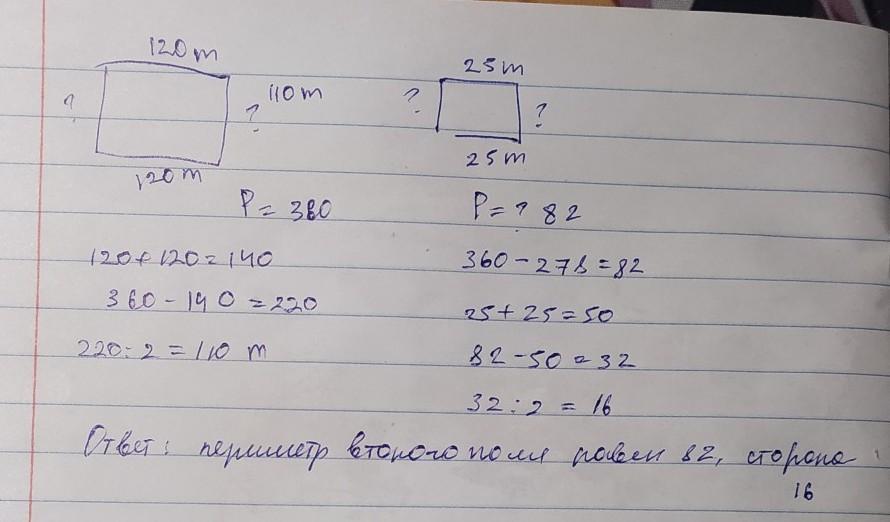 120 m
? ? 110 m
120 m
P = 360
120 + 120 = 140
360 - 140 = 220
220 : 2 = 110 m
25 m
? ?
25 m
P = ? 82
360 - 278 = 82
25 + 25 = 50
82 - 50 = 32
32 : 2 = 16
Ответ: периметр второго поля равен 82, сторона
16